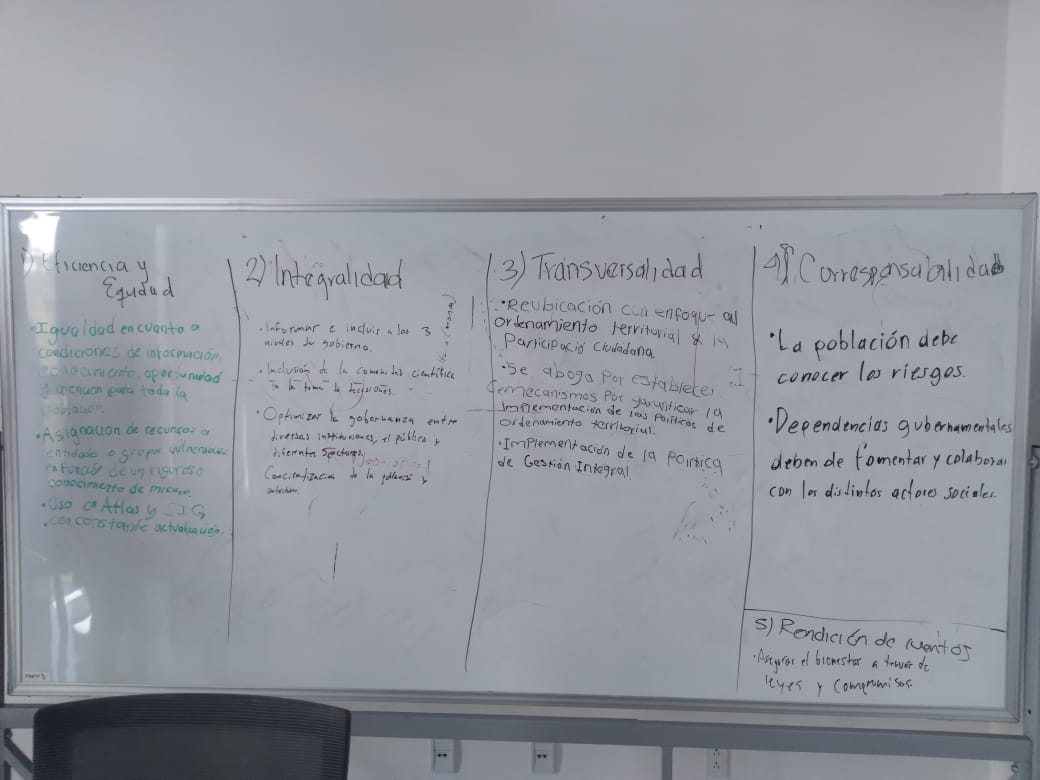 1) Eficiencia y
Equidad
• Igualdad en cuanto a
condiciones de información,
conocimiento, oportunidad
para toda la
población.
• Asignación de recursos a
entidades o grupos vulnerables
en función de un riguroso
conocimiento de
• Uso de Atlas y SIG
• con constante actualización.
2) Integralidad
• Informar e incluir a los 3
niveles de gobierno.
• Inclusión de la comunidad científica
en la toma de decisiones.
• Optimizar la gobernanza entre
diversas instituciones, el público y
diferentes sectores.
Concientización de la población y
3) Transversalidad
• Reubicación con enfoque al
ordenamiento territorial & la
Participació Ciudadana
• Se aboga por establecer
mecanismos por garantizar la
implementación de las políticas de
ordenamiento territorial.
• Implementación de la política
de Gestión Integral.
4) Corresponsabilidad
• La población debe
conocer los riesgos.
• Dependencias gubernamentales
deben de fomentar y colaborar
con los distintos actores sociales.
5) Rendición de cuentas
• Asegurar el bienestar a través de
leyes y compromisos.